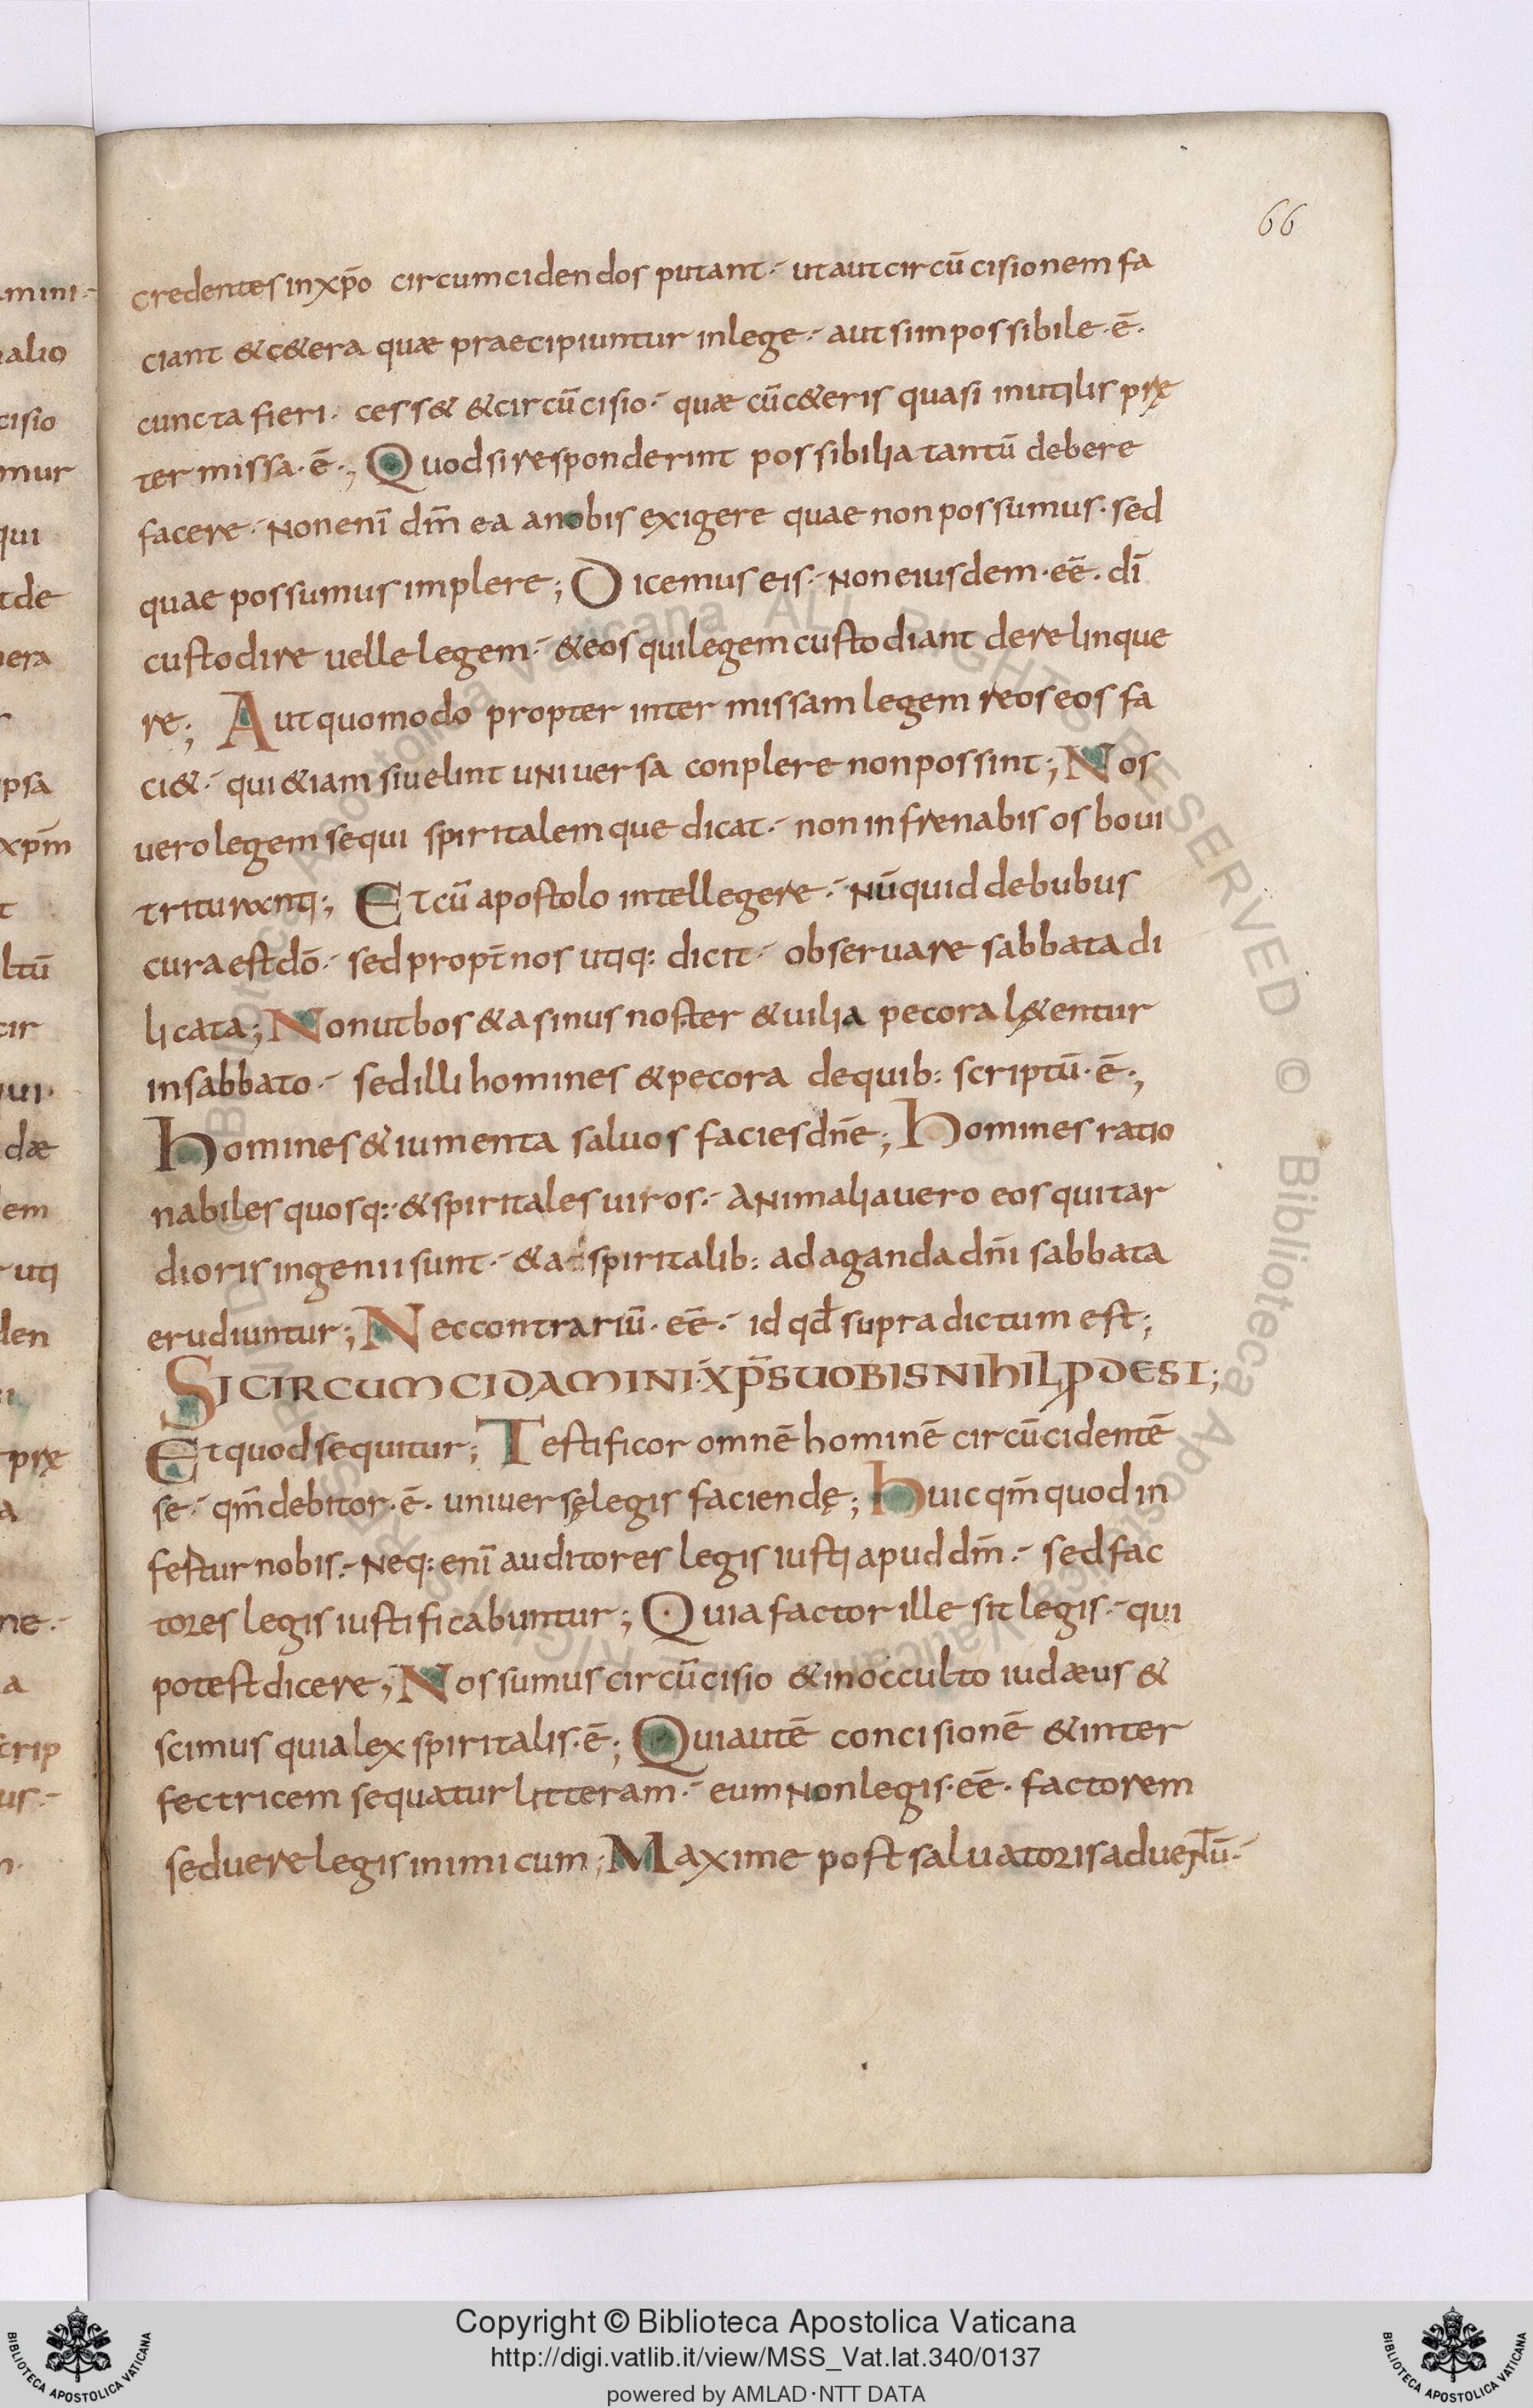 66
credentes in xp̄o circumcidendos putant· ut aut circū cisionem fa
ciant & c&era quæ praecipiuntur in lege· aut si inpossibile·ē·
cuncta fieri· cess& & circū cisio· quæ cū c&eris quasi inutilis prę
termissa·ē·; Quod si responderint possibilia tantū debere
facere· Non enī dm̄ ea a nobis exigere quae non possumus· sed
quae possumus implere; Dicemus eis· Non eiusdem·eē·dī
custodire uelle legem· & eos qui legem custodiant derelinque
re; Aut quomodo propter intermissam legem reos eos fa
ci&· qui &iam si uelint uniuersa conplere non possint; Nos
uero legem sequi spiritalem que dicat· non infrenabis os boui
trituranti; Et cū apostolo intellegere· Nū quid de bubus
cura est dō· sed propt̄ nos utiq: dicit· obseruare sabbata di
licata; Non ut bos & asinus noster & uilia pecora lę&entur
in sabbato· sed illi homines & pecora de quib: scriptū·ē·;
Homines & iumenta saluos facies dn̄e; Homines ratio
nabiles quosq:· & spiritales uiros· Animalia uero eos qui tar
dioris ingenii sunt· & a spiritalib: ad aganda dn̄i sabbata
erudiuntur; Nec contrariū·eē· id qd̄ supra dictum est;
SI CIRCUMCIDAMINI·XP̄S UOBIS NIHIL PDEST;
Et quod sequitur; Testificor omnē hominē circū cidentē
se· qm̄ debitor·ē· uniuersę legis faciendę; Huic qm̄ quod in
fertur nobis· Neq: enī auditores legis iusti apud dm̄· sed fac
tores legis iustificabuntur; Quia factor ille sit legis· qui
potest dicere; Nos sumus circū cisio & in occulto iudæus &
scimus quia lex spiritalis·ē; Qui autē concisionē & inter
fectricem sequatur litteram· eum Non legis·eē· factorem
sed uere legis inimicum; Maxime post saluatoris aduentū·
Copyright © Biblioteca Apostolica Vaticana
http://digi.vatlib.it/view/MSS_Vat.lat.340/0137
powered by AMLAD·NTT DATA